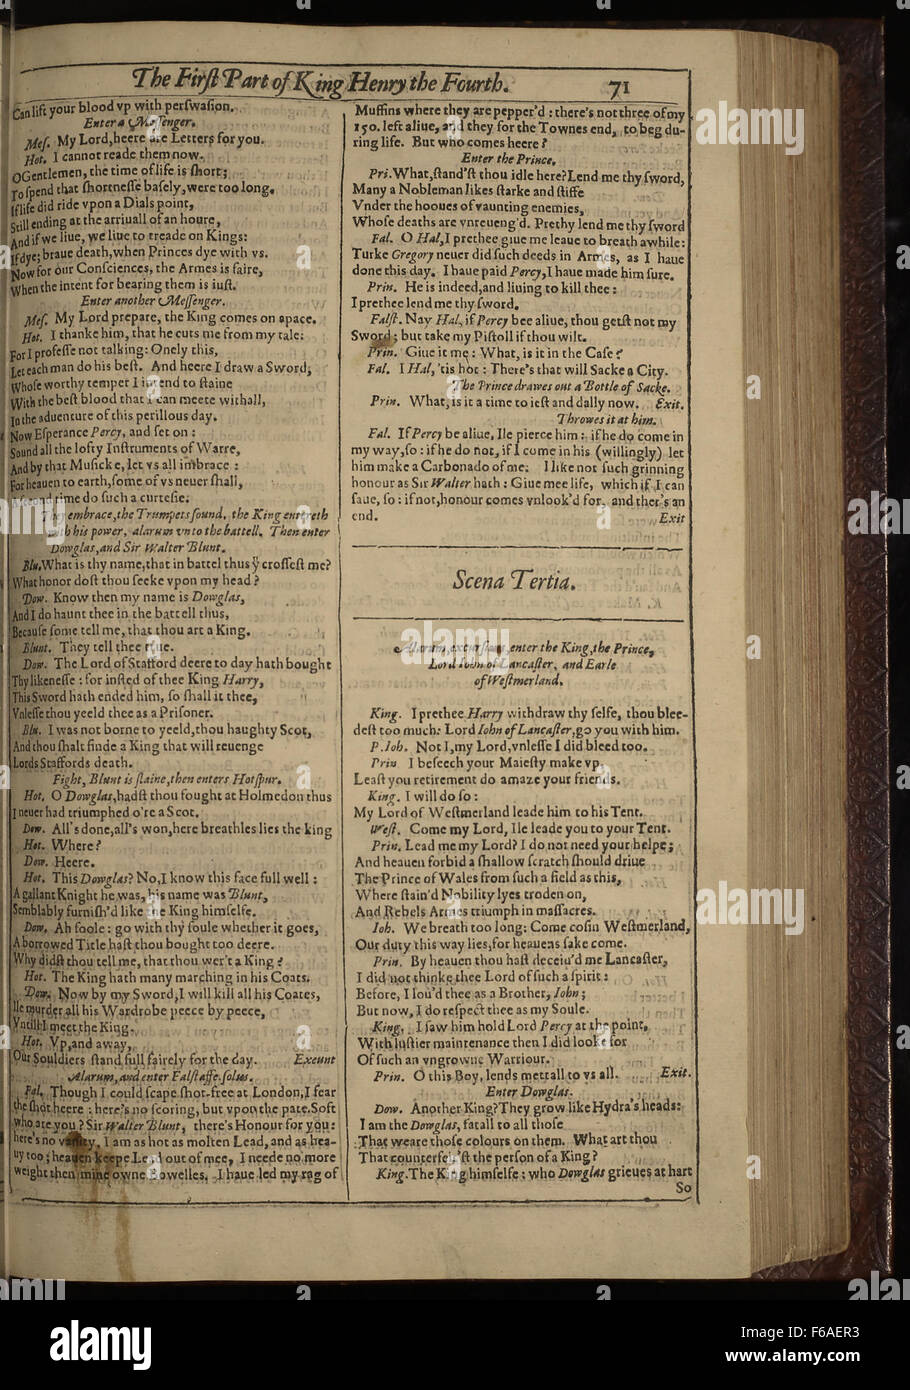 The First Part of King Henry the Fourth. 71
Can lift your blood vp with perſwaſion.
Enter a Meſſenger.
Meſ. My Lord, heere are Letters for you.
Hot. I cannot reade them now.
O Gentlemen, the time of life is ſhort;
To ſpend that ſhortneſſe baſely, were too long.
If life did ride vpon a Dials point,
Still ending at the arriuall of an houre,
And if we liue, we liue to treade on Kings:
If dye; braue death, when Princes dye with vs.
Now for our Conſciences, the Armes is faire,
When the intent for bearing them is iuſt.
Enter another Meſſenger.
Meſ. My Lord prepare, the King comes on apace.
Hot. I thanke him, that he cuts me from my tale:
For I profeſſe not talking: Onely this,
Let each man do his beſt. And heere I draw a Sword,
Whoſe worthy temper I intend to ſtaine
With the beſt blood that I can meete withall,
In the aduenture of this perillous day.
Now Eſperance Percy, and ſet on:
Sound all the lofty Inſtruments of Warre,
And by that Muſicke, let vs all imbrace:
For heauen to earth, ſome of vs neuer ſhall,
A ſecond time do ſuch a curteſie.
They embrace, the Trumpets ſound, the King entereth
with his power, alarum vnto the battell. Then enter
Dowglas, and Sir Walter Blunt.
Blu. What is thy name, that in battel thus yͧ croſſeſt me?
What honor doſt thou ſeeke vpon my head?
Dow. Know then my name is Dowglas,
And I do haunt thee in the battell thus,
Becauſe ſome tell me, that thou art a King.
Blunt. They tell thee true.
Dow. The Lord of Stafford deere to day hath bought
Thy likeneſſe: for inſted of thee King Harry,
This Sword hath ended him, ſo ſhall it thee,
Vnleſſe thou yeeld thee as a Priſoner.
Blu. I was not borne to yeeld, thou haughty Scot,
And thou ſhalt finde a King that will reuenge
Lords Staffords death.
Fight, Blunt is ſlaine, then enters Hotſpur.
Hot. O Dowglas, hadſt thou fought at Holmedon thus
I neuer had triumphed o're a Scot.
Dow. All's done, all's won, here breathles lies the king
Hot. Where?
Dow. Heere.
Hot. This Dowglas? No, I know this face full well:
A gallant Knight he was, his name was Blunt,
Semblably furniſh'd like the King himſelfe.
Dow. Ah foole: go with thy ſoule whether it goes,
A borrowed Title haſt thou bought too deere.
Why didſt thou tell me, that thou wer't a King?
Hot. The King hath many marching in his Coats.
Dow. Now by my Sword, I will kill all his Coates,
Ile murder all his Wardrobe peece by peece,
Vntill I meet the King.
Hot. Vp, and away,
Our Souldiers ſtand full fairely for the day. Exeunt
Alarum, and enter Falſtaffe ſolus.
Fal. Though I could ſcape ſhot-free at London, I fear
the ſhot heere: here's no ſcoring, but vpon the pate. Soft
who are you? Sir Walter Blunt, there's Honour for you:
here's no vanity, I am as hot as molten Lead, and as hea-
uy too; heauen keepe Lead out of mee, I neede no more
weight then mine owne Bowelles. I haue led my rag of
Muffins where they are pepper'd: there's not three of my
150. left aliue, and they for the Townes end, to beg du-
ring life. But who comes heere?
Enter the Prince,
Pri. What, ſtand'ſt thou idle here? Lend me thy ſword,
Many a Nobleman likes ſtarke and ſtiffe
Vnder the hooues of vaunting enemies,
Whoſe deaths are vnreueng'd. Prethy lend me thy ſword
Fal. O Hal, I prethee giue me leaue to breath awhile:
Turke Gregory neuer did ſuch deeds in Armes, as I haue
done this day. I haue paid Percy, I haue made him ſure.
Prin. He is indeed, and liuing to kill thee:
I prethee lend me thy ſword.
Falſt. Nay Hal, if Percy bee aliue, thou getſt not my
Sword; but take my Piſtoll if thou wilt.
Prin. Giue it me: What, is it in the Caſe?
Fal. I Hal, 'tis hot: There's that will Sacke a City.
The Prince drawes out a Bottle of Sacke.
Prin. What, is it a time to ieſt and dally now. Exit.
Throwes it at him.
Fal. If Percy be aliue, Ile pierce him: if he do come in
my way, ſo: if he do not, if I come in his (willingly) let
him make a Carbonado of me. I like not ſuch grinning
honour as Sir Walter hath: Giue mee life, which if I can
ſaue, ſo: if not, honour comes vnlook'd for, and ther's an
end. Exit
Scena Tertia.
Alarum, excurſions, enter the King, the Prince,
Lord Iohn of Lancaſter, and Earle
of Weſtmerland.
King. I prethee Harry withdraw thy ſelfe, thou blee-
deſt too much: Lord Iohn of Lancaſter, go you with him.
P. Ioh. Not I, my Lord, vnleſſe I did bleed too.
Prin I beſeech your Maieſty make vp
Leaſt you retirement do amaze your friends.
King. I will do ſo:
My Lord of Weſtmerland leade him to his Tent.
Weſt. Come my Lord, Ile leade you to your Tent.
Prin. Lead me my Lord? I do not need your helpe;
And heauen forbid a ſhallow ſcratch ſhould driue
The Prince of Wales from ſuch a field as this,
Where ſtain'd Nobility lyes troden on,
And Rebels Armes triumph in maſſacres.
Ioh. We breath too long: Come coſin Weſtmerland,
Our duty this way lies, for heauens ſake come.
Prin. By heauen thou haſt deceiu'd me Lancaſter,
I did not thinke thee Lord of ſuch a ſpirit:
Before, I lou'd thee as a Brother, Iohn;
But now, I do reſpect thee as my Soule.
King. I ſaw him hold Lord Percy at the point,
With luſtier maintenance then I did looke for
Of ſuch an vngrowne Warriour.
Prin. O this Boy, lends mettall to vs all. Exit.
Enter Dowglas.
Dow. Another King? They grow like Hydra's heads:
I am the Dowglas, fatall to all thoſe
That weare thoſe colours on them. What art thou
That counterfeit'ſt the perſon of a King?
King. The King himſelfe: who Dowglas grieues at hart
So
alamy
Image ID: F6AER3
www.alamy.com